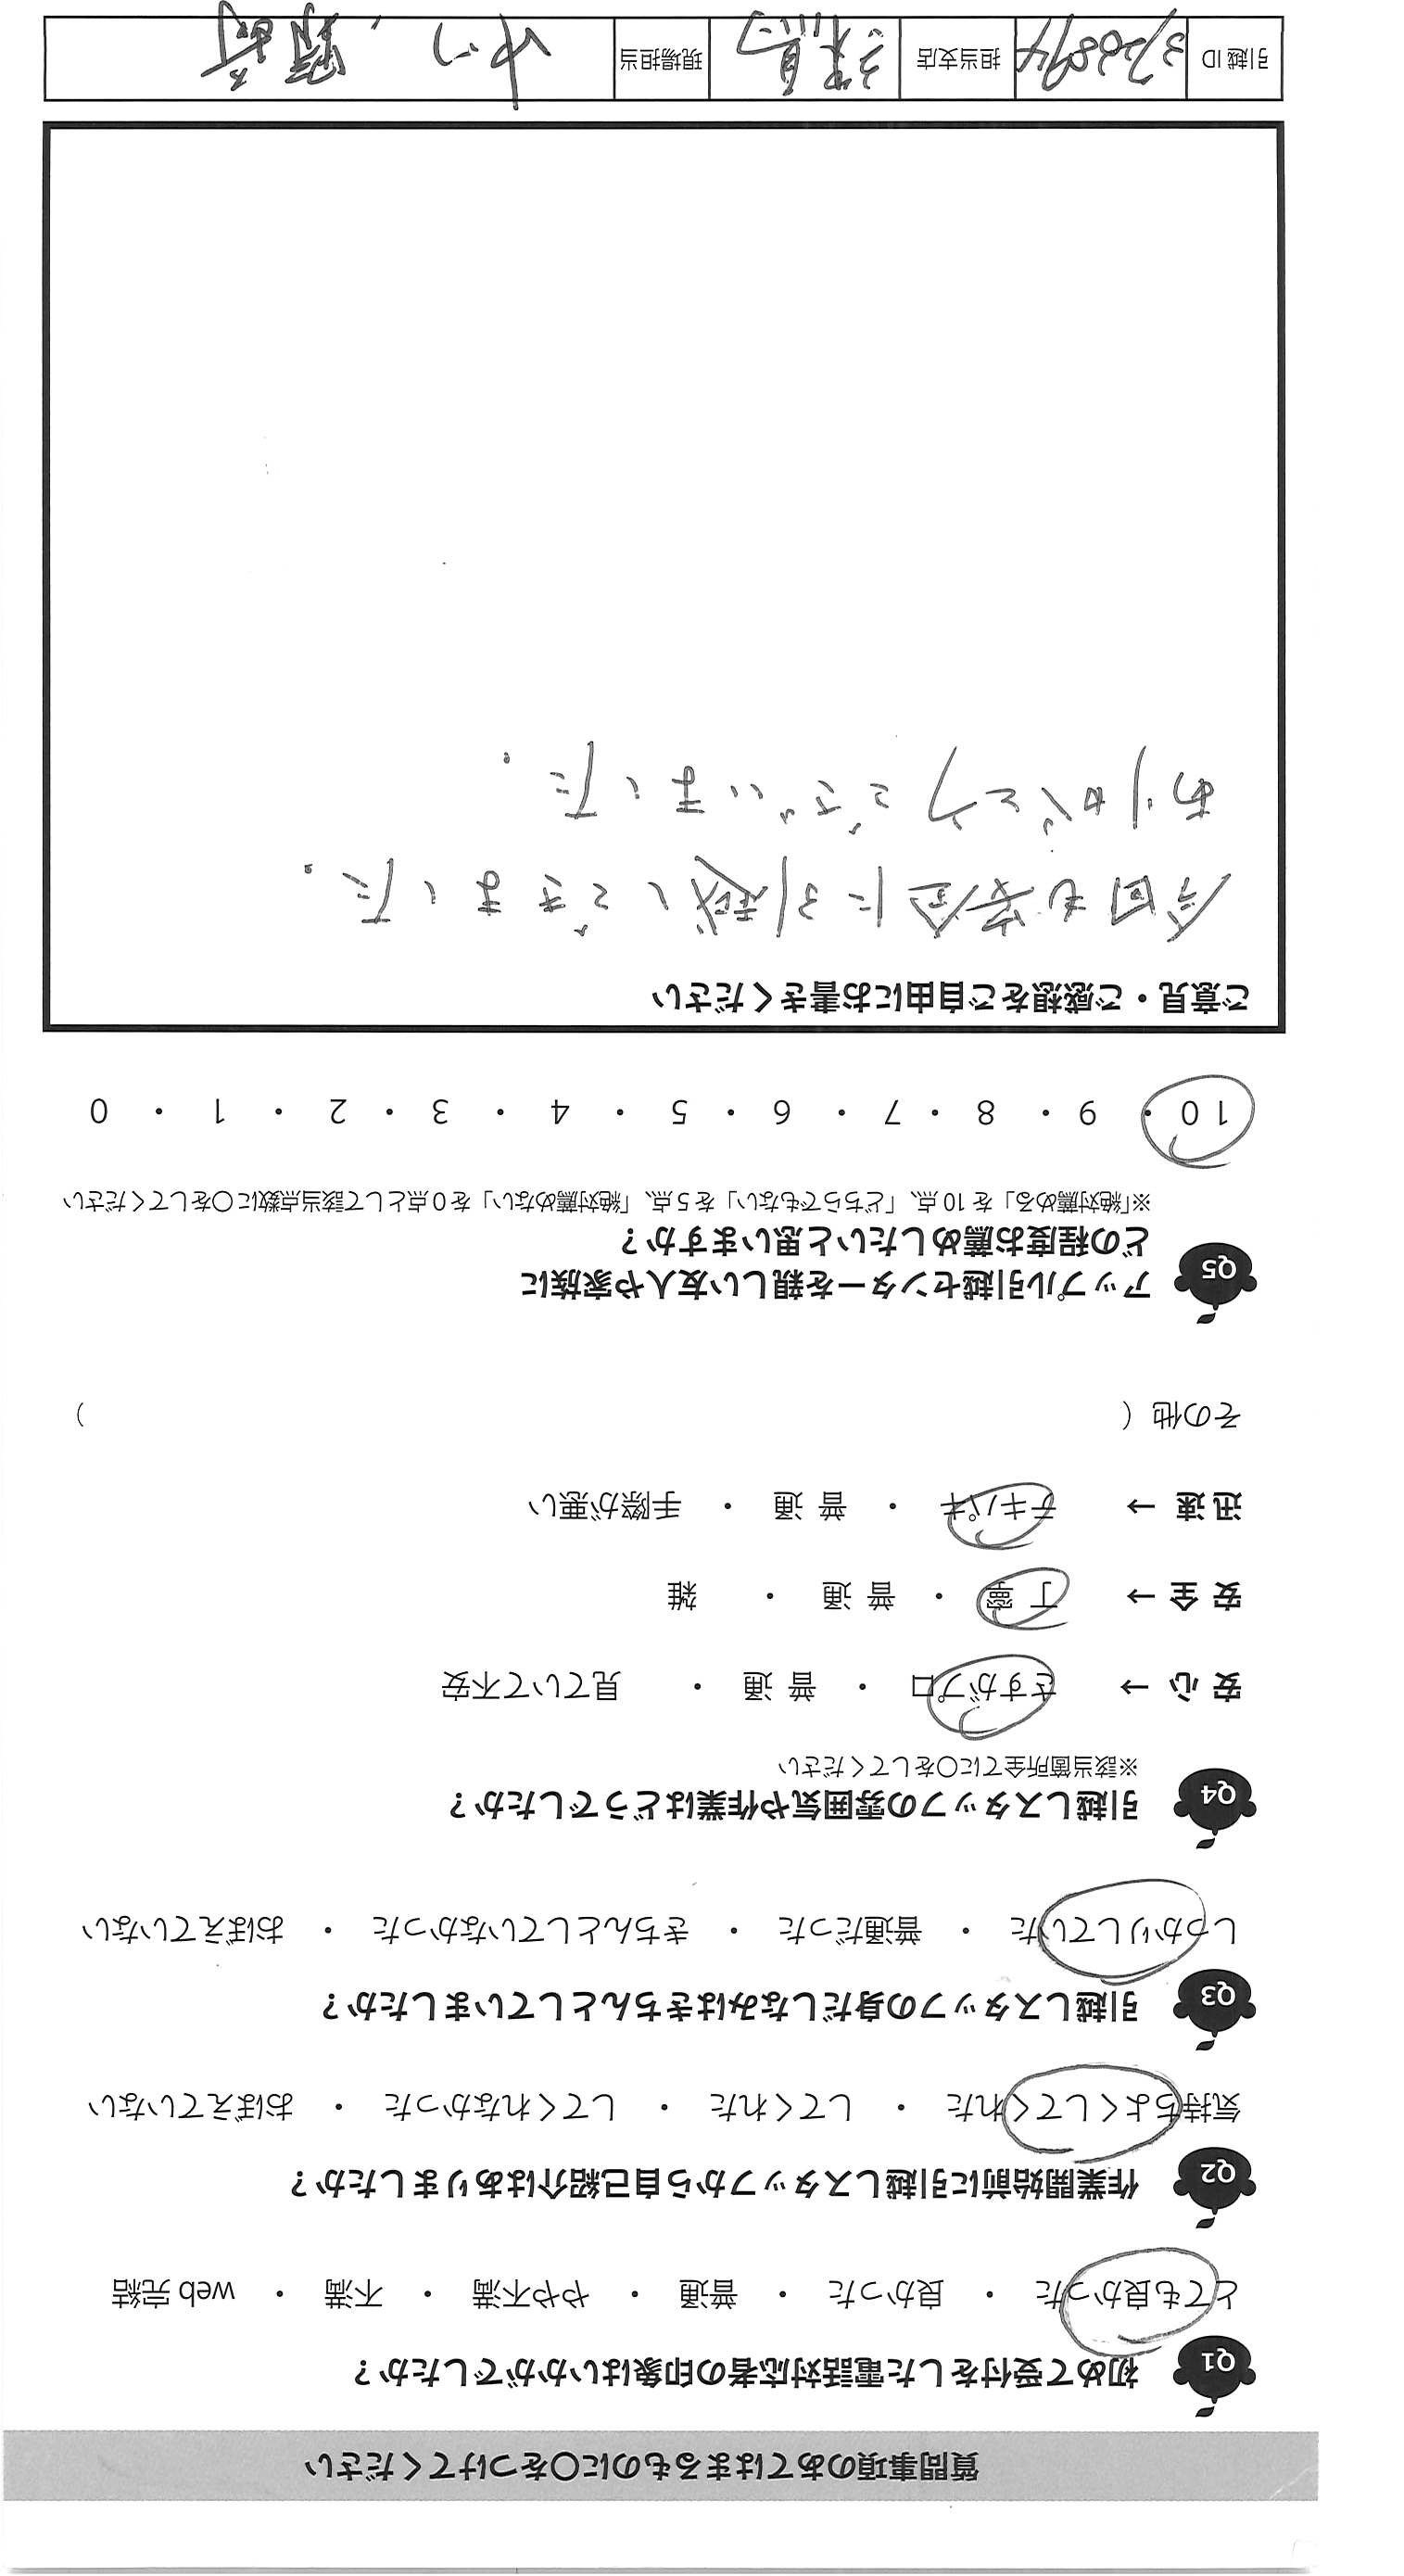 質問事項のあてはまるものに○をつけてください
Q1 初めて受付をした電話対応者の印象はいかがでしたか？
とても良かった ・ 良かった ・ 普通 ・ やや不満 ・ 不満 ・ web 完結
Q2 作業開始前に引越しスタッフから自己紹介はありましたか？
気持ちよくしてくれた ・ してくれた ・ してくれなかった ・ おぼえていない
Q3 引越しスタッフの身だしなみはきちんとしていましたか？
しっかりしていた ・ 普通だった ・ きちんとしていなかった ・ おぼえていない
Q4 引越しスタッフの雰囲気や作業はどうでしたか？
※該当箇所全てに○をしてください
安 心 → さすがプロ ・ 普 通 ・ 見ていて不安
安 全 → 丁 寧 ・ 普 通 ・ 雑
迅 速 → テキパキ ・ 普 通 ・ 手際が悪い
その他（ ）
Q5 アップル引越センターを親しい友人や家族に
どの程度お薦めしたいと思いますか？
※「絶対薦める」を 10 点、「どちらでもない」を 5 点、「絶対薦めない」を 0 点として該当点数に○をしてください
10 ・ 9 ・ 8 ・ 7 ・ 6 ・ 5 ・ 4 ・ 3 ・ 2 ・ 1 ・ 0
ご意見・ご感想をご自由にお書きください
今回も安全に引越しできました。
ありがとうございました。
引越 ID 担当支店 練馬 現場担当